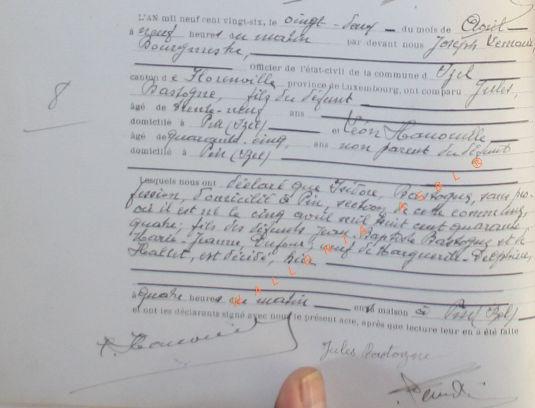 L'AN mil neuf cent vingt-six, le vingt-deux du mois de Août
à neuf heures du matin par devant nous Joseph
Bourgmestre,
Officier de l'état-civil de la commune d Izel
canton d e Florenville province de Luxembourg, ont comparu Jules,
Bastogne, fils du défunt
âgé de trente-neuf ans
domicilié à Pin (Izel) et Léon Hanouille
âgé de quarante-cinq, ans non parent du défunt
domicilié à Pin (Izel)
8
Lesquels nous ont déclaré que Isidore, Bastogne, sans pro-
fession, domicilié à Pin, section de cette commune,
où il est né le cinq avril mil huit cent quarante
quatre; fils des défunts Jean Baptiste Bastogne et de
Marie-Jeanne, veuf de Marguerite-Delphine,
Hallet, est décédé, hier
à quatre heures du matin en sa maison à Pin (Izel)
et ont les déclarants signé avec nous le présent acte, après que lecture leur en a été faite
Jules Bastogne
WALLONIA ASBL ©